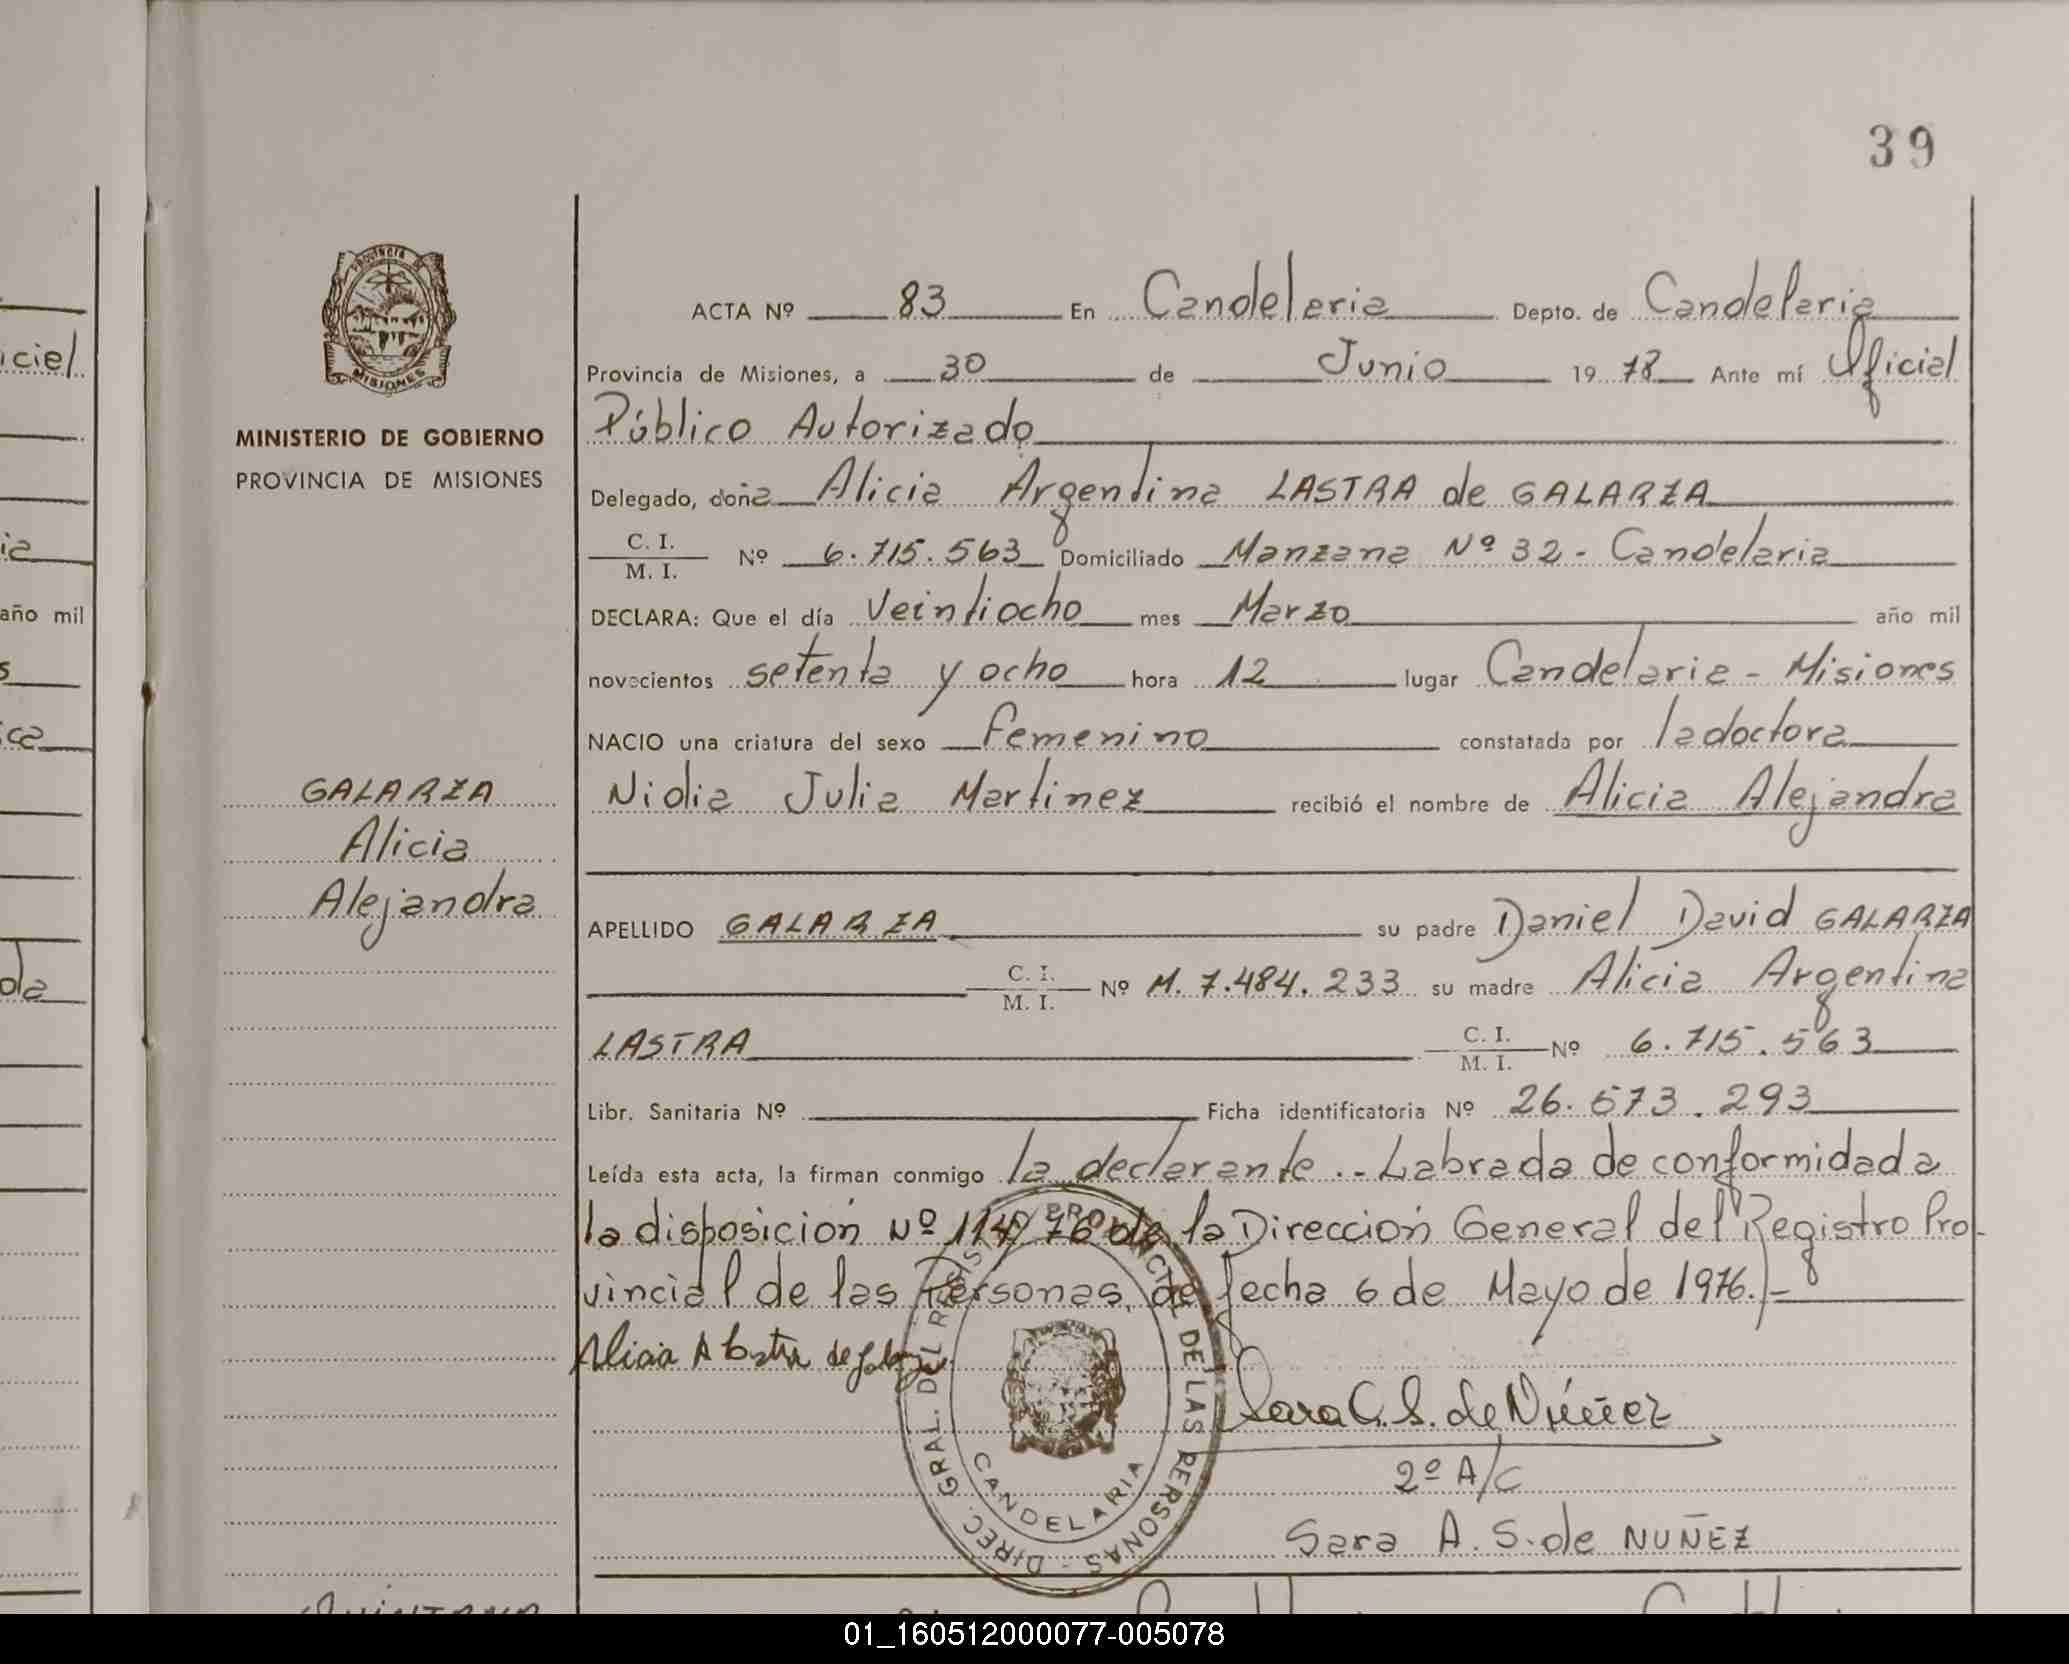 39
PROVINCIA DE
MISIONES
MINISTERIO DE GOBIERNO
PROVINCIA DE MISIONES
GALARZA
Alicia
Alejandra
ACTA Nº 83 En Candelaria Depto. de Candelaria
Provincia de Misiones, a 30 de Junio 19 78 Ante mí Oficial
Público Autorizado
Delegado, doña Alicia Argentina LASTRA de GALARZA
C. I.
M. I. Nº 6.715.563 Domiciliado Manzana Nº 32 - Candelaria
DECLARA: Que el día Veintiocho mes Marzo año mil
novecientos setenta y ocho hora 12 lugar Candelaria - Misiones
NACIO una criatura del sexo femenino constatada por la doctora
Nidia Julia Martinez recibió el nombre de Alicia Alejandra
APELLIDO GALARZA su padre Daniel David GALARZA
C. I.
M. I. Nº M. 7.484.233 su madre Alicia Argentina
LASTRA C. I.
M. I. Nº 6.715.563
Libr. Sanitaria Nº Ficha identificatoria Nº 26.573.293
Leída esta acta, la firman conmigo la declarante.- Labrada de conformidad a
la disposición Nº 114/76 de la Dirección General del Registro Pro-
vincial de las Personas, de fecha 6 de Mayo de 1976.)-
Alicia A Lastra de Galarza
DIREC. GRAL. DEL REGISTRO PROVINCIAL DE LAS PERSONAS -
CANDELARIA
Sara A. S. de Núñez
2º A/C
Sara A. S. de NUÑEZ
iciel
ia
año mil
s
ca
da
QUINTANA
01_160512000077-005078